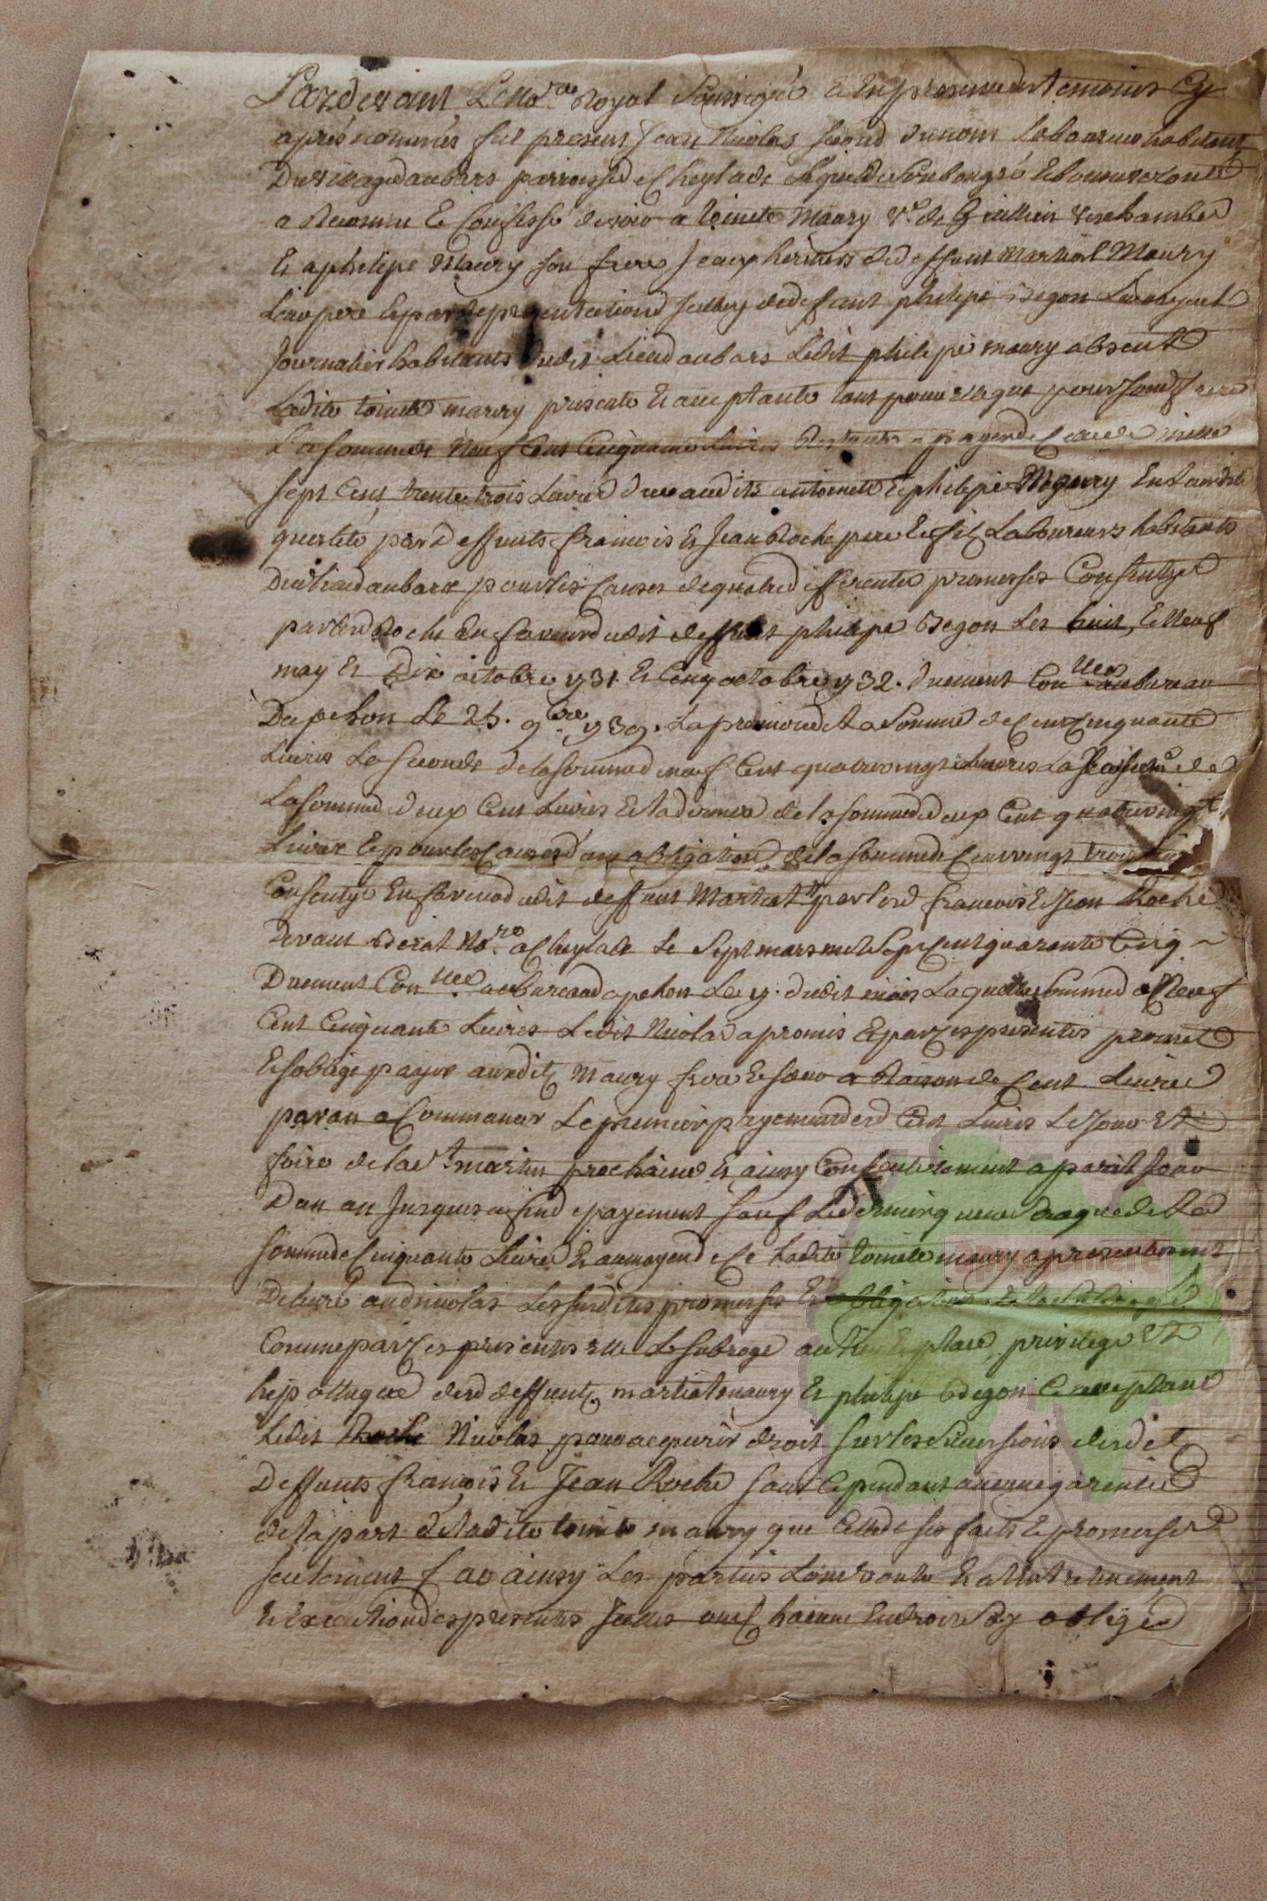 Pardevant Le no.re Royal Soussigné et En presence des temoins Cy
après nommés fut present Jean Nicolas segond du nom laboureur habitant
Du village daubars parroisse de Cheylade Lequel de Son bon gré et bonne volonté
a Reconnu Et Confessé devoir a toinete Maury v.e de Guillein
Et a phelipe Maury son frere heritiers de deffunt Martial Maury
Leur pere Et par representation de deffunt phelipe Begon
Journalier habitants dudit Lieu daubars Ledit phelipe maury absent
Ladite toinete maury presente Et acceptante tant pour elle que pour sondit frere
La somme de Neuf Cent Cinquante Livres Restante a payer de celle de mille
sept Cent trente trois Livres due ausdits antoinete Et phelipe Maury En laditte
qualité par deffunts francois Et Jean Roche pere Et fils Laboureurs habitants
Dudit Lieu daubars pour les Causes de quatre differentes promesses Consenties
par lesd Roche En faveur dudit deffunt phelipe Begon Les huit, Et Neuf
may Et Dix octobre 1731 Et Cinq octobre 1732. duement Con.llées au bureau
Dapchon Le 25. 9.bre 1739. La premiere de la Somme de Cent Cinquante
Livres La Seconde de la somme de neuf Cent quatrevingt Livres La troisieme de
La somme deux Cent Livres Et la derniere de la somme de deux Cent quatrevingt
Livres Et pour les Causes d'une obligation de la somme de Cent vingt trois Livres
Consentye En faveur dudit deffunt Martial par lesd francois Et Jean Roche
devant Berat No.re a Cheylade Le Sept mars mil Sept Cent quarante Cinq
Duement Con.llée au bureau dapchon Le 19. dudit mois Laquelle somme de Neuf
Cent Cinquante Livres Ledit Nicolas a promis Et par Ces presentes promet
Et soblige payer ausdits Maury frere Et sœur a Raison de Cent Livres
par an a Commancer Le premier payement desd Cent Livres Le Jour Et
foire de la S.t martin prochaine Et ainsy Consecutivement a pareil Jour
Dun an Jusques a fin de payement sauf Le dernier qui ne sera que de la
somme de Cinquante Livres Et au moyen de Ce Ladite toinete maury a presentement
Delivré aud nicolas Les susdites promesses Et obligation
Comme par Ces presentes elle Le subroge au lieu Et place, privilege Et
hipotteque desd deffunts martial maury Et phelipe Begon Ce acceptant
Ledit Nicolas pour acquerir droit sur les successions desdits
Deffunts francois Et Jean Roche sans Cependant aucune garentie
de la part de ladite toinete maury que Celle de ses faits Et promesses
seulement Car ainsy Les parties Lont voulu Et a lentretenement
Et Execution des presentes Icelles une Chacune En droit soy obligé